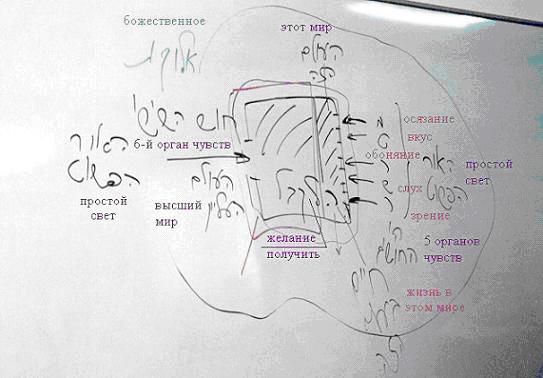 божественное
этот мир
העולם
הזה
осязание
חוש השישי
вкус
האור
6-й орган чувств
обоняние
האור
простой
הפשוט
העולם
слух
הפשוט
свет
простой
свет
высший
мир
העליון
לקבל
зрение
желание
получить
ה'
החושים
5 органов
чувств
חיים
жизнь в
этом мире
הזה